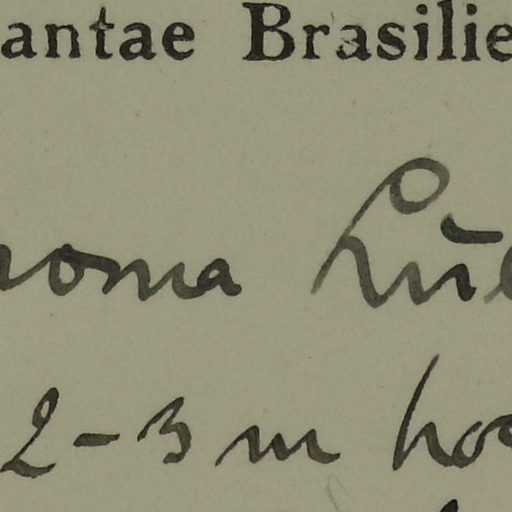 antae Brasilie
noma Lü
2-3 m ho